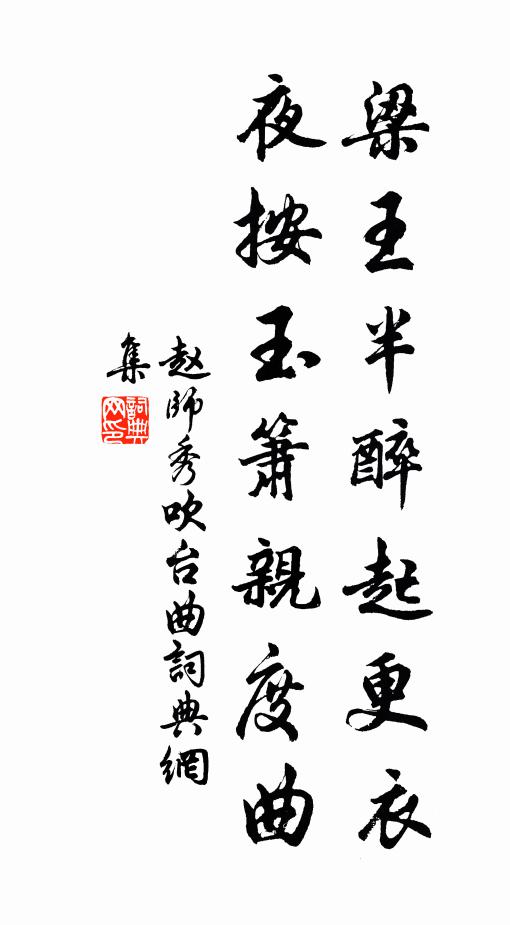 梁王半醉起更衣
夜按玉簫親度曲
赵師秀吹台曲詞典網
集
詞典
网印